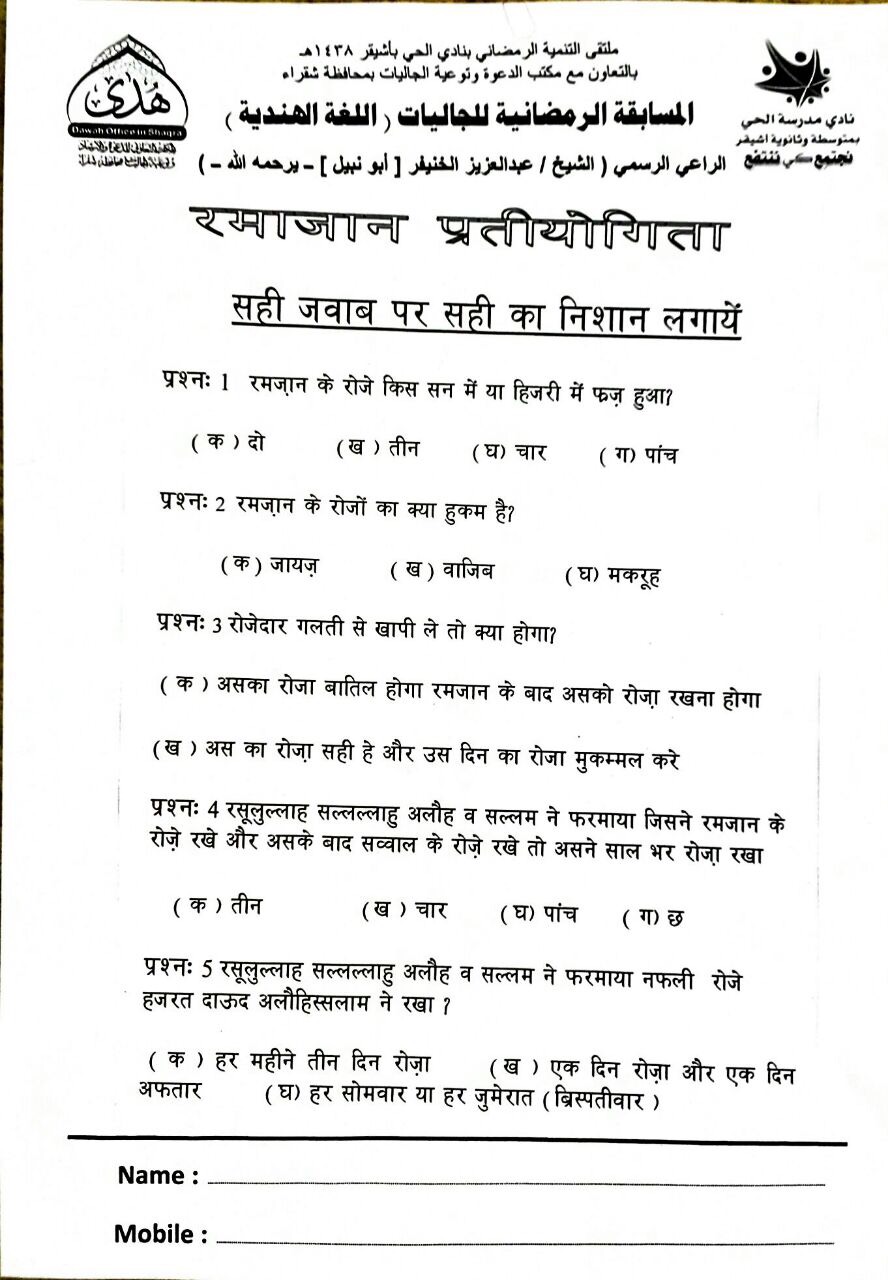 ملتقى التنمية الرمضاني بنادي الحي بأشيقر ١٤٣٨هـ
بالتعاون مع مكتب الدعوة وتوعية الجاليات بمحافظة شقراء
المسابقة الرمضانية للجاليات ( اللغة الهندية )
الراعي الرسمي ( الشيخ / عبدالعزيز الخنيفر [ أبو نبيل ] - يرحمه الله - )
هُدى
Dawah Office in Shaqra
نادي مدرسة الحي
بمتوسطة وثانوية أشيقر
نجتمع كي ننتفع
रमाजान प्रतीयोगिता
सही जवाब पर सही का निशान लगायें
प्रश्नः 1 रमज़ान के रोजे किस सन में या हिजरी में फज़ हुआ?
( क ) दो ( ख ) तीन ( घ) चार ( ग) पांच
प्रश्नः 2 रमज़ान के रोजों का क्या हुकम है?
( क ) जायज़ ( ख ) वाजिब ( घ) मकरूह
प्रश्नः 3 रोजेदार गलती से खापी ले तो क्या होगा?
( क ) असका रोजा बातिल होगा रमजान के बाद असको रोज़ा रखना होगा
(ख ) अस का रोज़ा सही हे और उस दिन का रोजा मुकम्मल करे
प्रश्नः 4 रसूलुल्लाह सल्लल्लाहु अलौह व सल्लम ने फरमाया जिसने रमजान के
रोज़े रखे और असके बाद सव्वाल के रोज़े रखे तो असने साल भर रोज़ा रखा
( क ) तीन ( ख ) चार ( घ) पांच ( ग) छ
प्रश्नः 5 रसूलुल्लाह सल्लल्लाहु अलौह व सल्लम ने फरमाया नफली रोजे
हजरत दाऊद अलौहिस्सलाम ने रखा ?
( क ) हर महीने तीन दिन रोज़ा ( ख ) एक दिन रोज़ा और एक दिन
अफतार ( घ) हर सोमवार या हर जुमेरात ( ब्रिस्पतीवार )
Name :
Mobile :